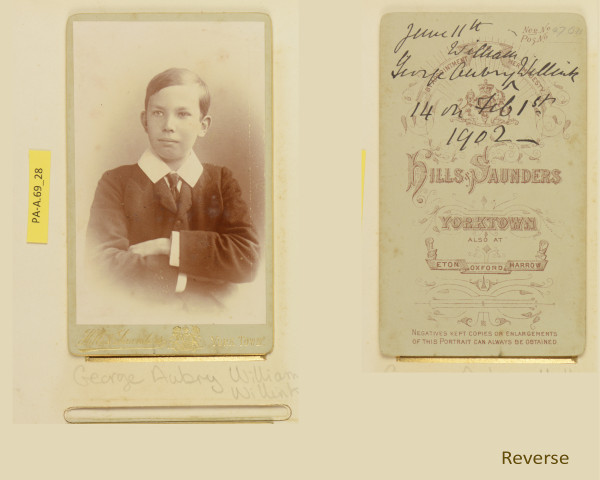 PA-A.69_28
George Aubry William
Willink
June 11th
William
George Aubry Willink
14 on Feb 1st
1902
Neg. No
Pos. No
HILLS & SAUNDERS
YORKTOWN
ALSO AT
ETON OXFORD HARROW
NEGATIVES KEPT COPIES OR ENLARGEMENTS
OF THIS PORTRAIT CAN ALWAYS BE OBTAINED
Reverse